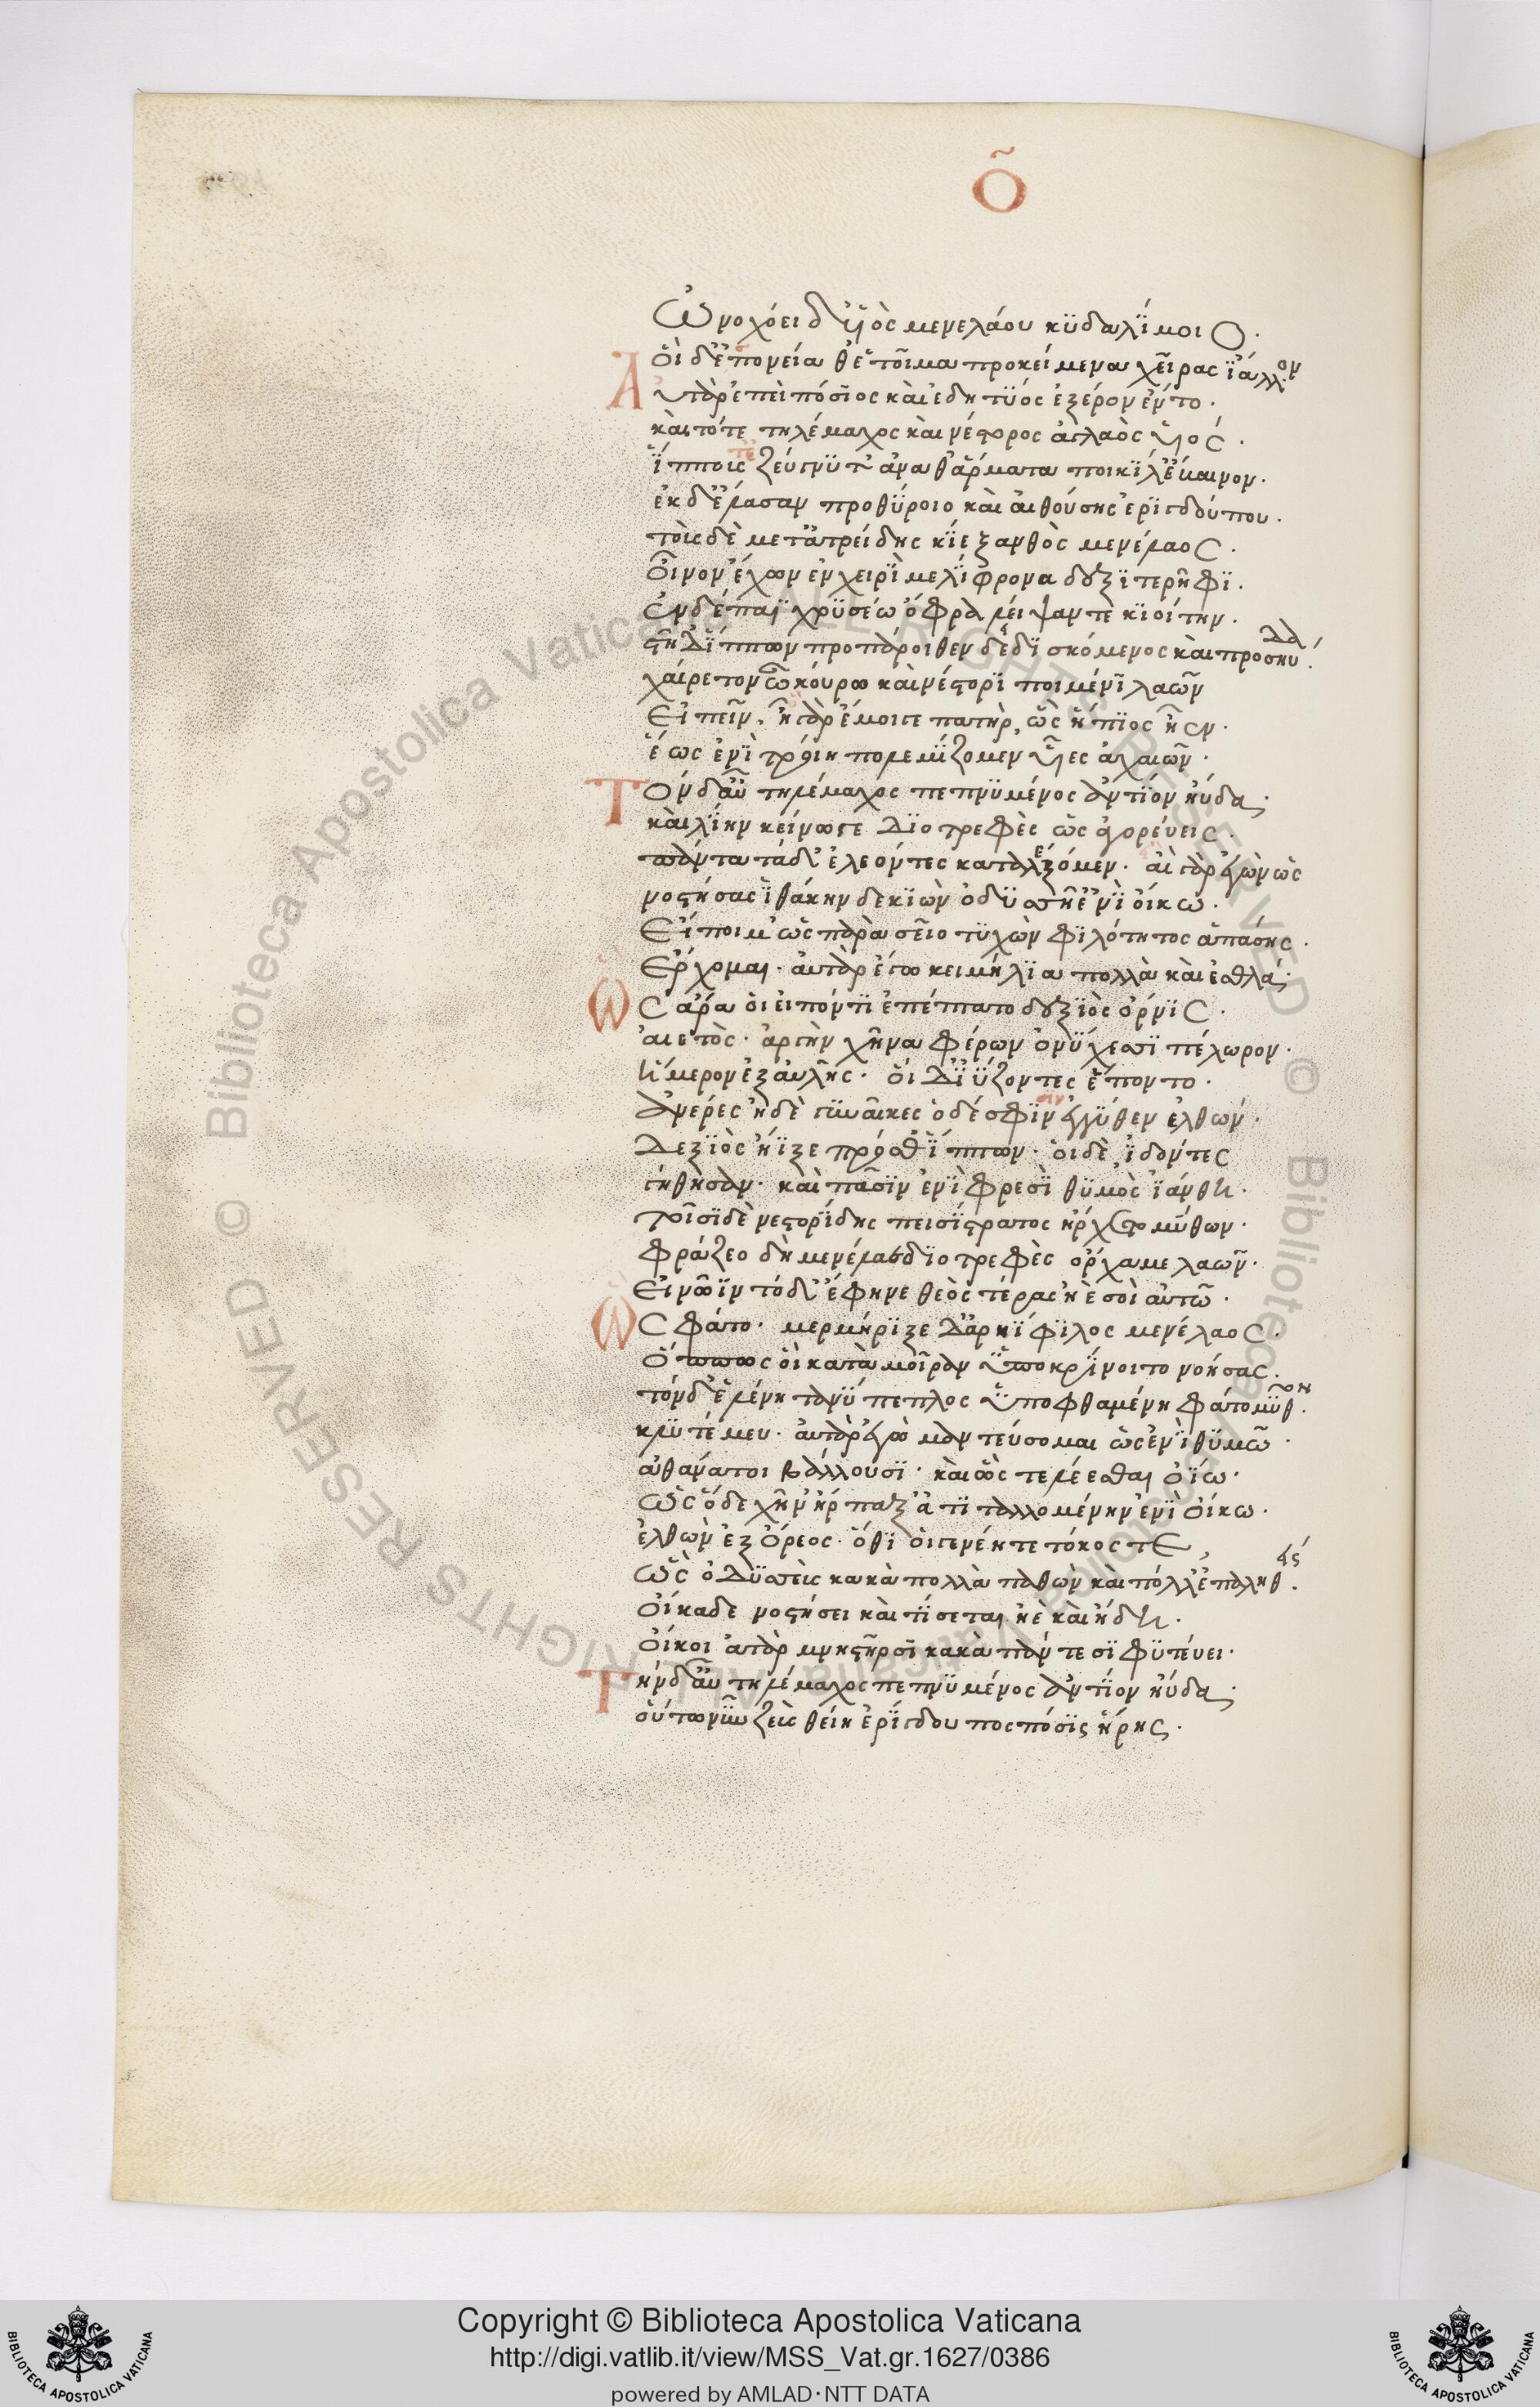 Ὸ
Ὠνοχόει δ' υἱὸς μενελάου κυδαλίμοιο.
ὁι δ' ἐπ' ὀνείαθ' ἑτοῖμα προκείμενα χεῖρας ἴαλλον
Αὐτὰρ ἐπεὶ πόσιος καὶ ἐδητύος ἐξ ἔρον ἕντο.
καὶ τότε τηλέμαχος καὶ νέστορος ἀγλαὸς υἱός.
ἵππους τε ζεύγνυτ' ἀνά θ' ἅρματα ποικίλ' ἔβαινον.
ἐκ δ' ἔλασαν προθύροιο καὶ αἰθούσης ἐριγδούπου.
τοὺς δὲ μετ' ἀτρείδης κίε ξανθὸς μενέλαος.
Οἶνον ἔχων ἐν χειρὶ μελίφρονα δεξιτερῆφι.
Ἐν δέπαϊ χρυσέω ὄφρα λείψαντε κιοίτην.
στῆ δ' ἵππων προπάροιθεν δεδισκόμενος καὶ προσηύδα.
χαίρετον ὦ κούρω καὶ νέστορι ποιμένι λαῶν
Εἰπεῖν. ἦ γὰρ ἔμοιγε πατὴρ, ὣς ἤπιος ἦεν.
ἕως ἐνὶ τροίη πολεμίζομεν υἷες ἀχαιῶν.
Τὸν δ' αὖ τηλέμαχος πεπνυμένος ἀντίον ηύδα.
καὶ λίην κείνω γε διοτρεφὲς ὡς ἀγορεύεις.
πάντα τάδ' ἐλθόντες καταλέξομεν. αἲ γὰρ ἐγὼν ὣς
νοστήσας ἰθάκην δε κιὼν ὀδυσσῆ' ἐνὶ οἴκω.
Εἴποιμ' ὡς παρὰ σεῖο τυχὼν φιλότητος ἁπάσης.
Ἔρχομαι. αὐτὰρ ἄγω κειμήλια πολλὰ καὶ ἐσθλά.
Ὣς ἄρα ὁι εἰπόντι ἐπέπτατο δεξιὸς ὄρνις.
ἀιετὸς. ἀργὴν χῆνα φέρων ὀνύχεσσι πέλωρον.
ἥμερον ἐξ αὐλῆς. ὁι δ' ἰύζοντες ἕποντο.
ἀνέρες ἠδὲ γυναῖκες ὁ δέ σφισιν ἐγγύθεν ἐλθών.
Δεξιὸς ἤϊξε πρόσθ' ἵππων. ὁι δὲ ἰδόντες
γήθησαν. καὶ πᾶσιν ἐνὶ φρεσὶ θυμὸς ἰάνθη.
τοῖσι δὲ νεστορίδης πεισίστρατος ἤρχετο μύθων.
φράζεο δὴ μενέλαε διοτρεφὲς ὄρχαμε λαῶν.
Εἰ νῶϊν τόδ' ἔφηνε θεὸς τέρας ἠὲ σοὶ αὐτῶ.
Ὣς φάτο. μερμήριξε δ' ἀρηΐφιλος μενέλαος.
Ὅππως ὁι κατὰ μοῖραν ὑποκρίνοιτο νοήσας.
τὸν δ' ἑλένη τανύπεπλος ὑποφθαμένη φάτο μῦθον.
κλῦτέ μευ. αὐτὰρ ἐγὼ μαντεύσομαι ὡς ἐνὶ θυμῶ.
ἀθάνατοι βάλλουσι. καὶ ὡς τελέεσθαι ὀΐω.
Ὡς ὅδε χῆν' ἥρπαξ' ἀτιταλλομένην ἐνὶ οἴκω.
ἐλθὼν ἐξ ὄρεος. ὅθι ὁι γενεή τε τόκος τε
Ὣς ὀδυσσεὺς κακὰ πολλὰ παθὼν καὶ πόλλ' ἐπαληθείς.
Οἴκαδε νοστήσει καὶ τίσεται ἠὲ καὶ ἤδη.
Οἴκοι ἀτὰρ μνηστῆρσι κακὰ πάντεσι φυτεύει.
Τὴν δ' αὖ τηλέμαχος πεπνυμένος ἀντίον ηύδα.
ὅυτω νῦν ζεὺς θείη ἐρίγδουπος πόσις ἥρης.
Copyright © Biblioteca Apostolica Vaticana
http://digi.vatlib.it/view/MSS_Vat.gr.1627/0386
powered by AMLAD·NTT DATA